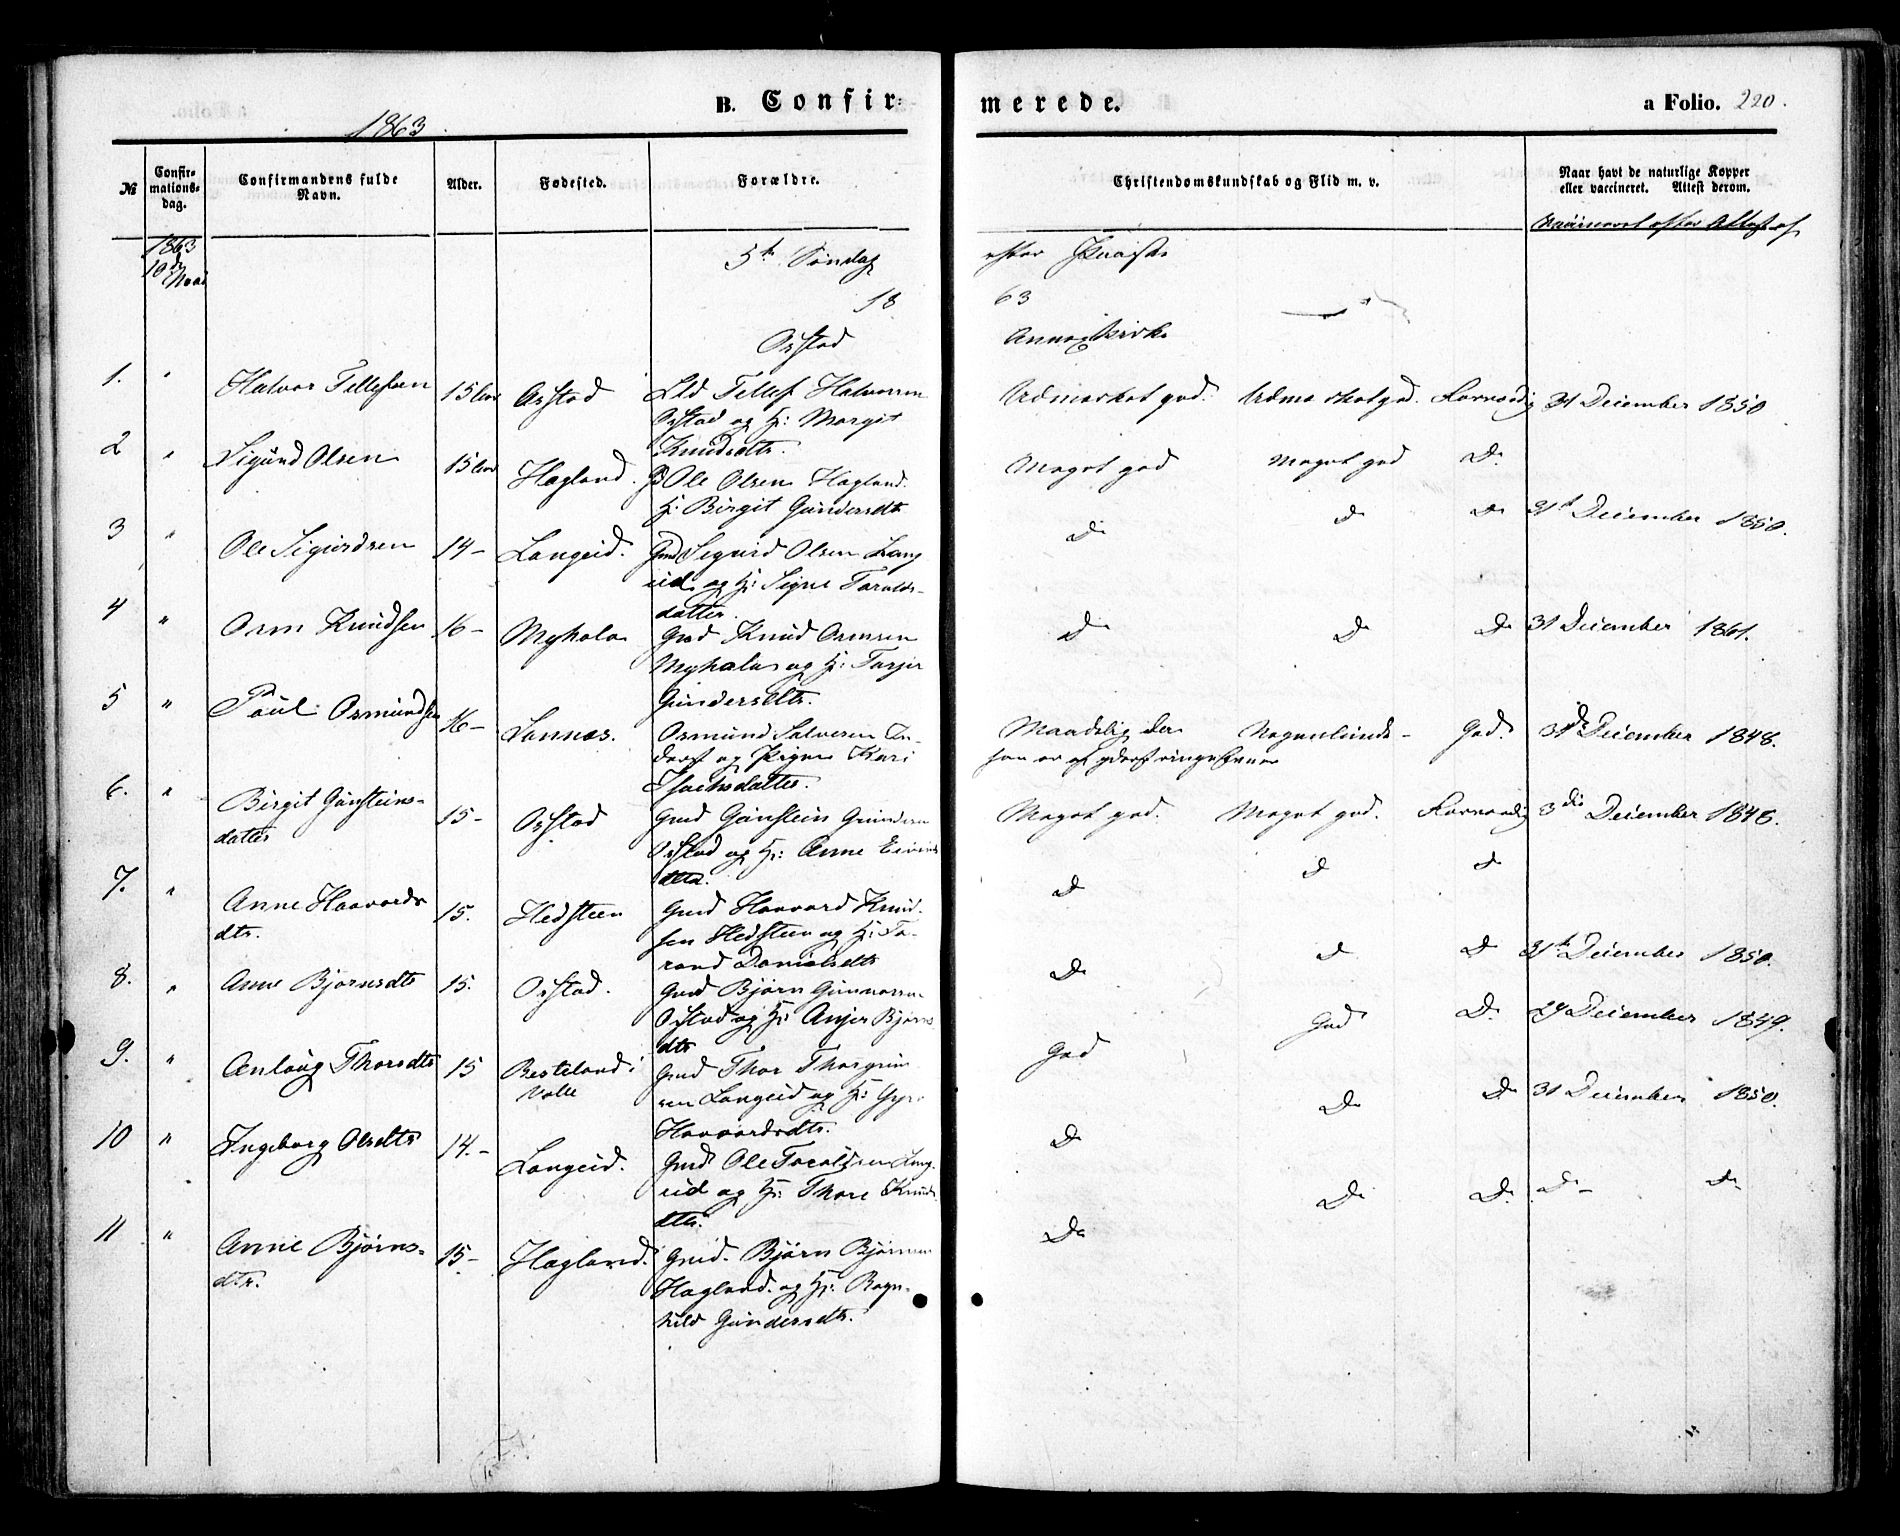 B. Confir-
merede.
a Folio. 220.
1863.
№
Confir-
mations-
dag.
Confirmandens fulde
Navn.
Alder.
Fødested.
Forældre.
Christendomskundskab og Flid m. v.
Naar havt de naturlige Kopper
eller vaccineret. Attest derom.
Vaccineret efter Attest af
1863
10de Mai
5te Søndag
efter Paaske
18
63
Ostad
Annexkirke
1. " Halvor Tellefsen 15 Aar Ostad Lld Tellef Halvorsen
Ostad og H: Margit
Knudsdtr.
Udmærket god. Udmærket god. Særdeles 31 December 1850
2 " Sigurd Olsen 15 Aar Hagland. Gd Ole Olsen Hagland.
H: Birgit Gundersdtr
Meget god Meget god Do
3 " Ole Sigurdsen 14- Langeid. Gmd Sigurd Olsen Lang
eid og H: Signe Taralds-
datter.
Do Do Do 31te December 1850.
4 " Osm Knudsen 16- Myhala Gmd Knud Osmsen
Myhala og H: Tarjer
Gundersdtr.
Do Do Do 31 December 1861.
5 " Paul Osmundsen 16- Lannæs. Osmund Salvesen
og Pigen Kari
Isachsdatter.
Maadelig
han er af yderst ringe Evner
Nogenlunde- God. 31de December 1848.
6. " Birgit Gunsteins-
datter 15- Ostad Gmd Gunstein Gundersen
Ostad og H: Anne Eivinds
dtr.
Meget god. Meget god. 3die December 1848.
7. " Anne Haavards
dtr. 15. Hedsteen Gmd Haavard Knud-
sen Hedsteen og H: To-
rand Danielsdtr
Do Do Do
8. " Anne Bjørnsdtr 15. Ostad. Gmd Bjørn Gunnarsen
Ostad og H: Anjer Bjørns
dtr
Do Do Do 31te December 1850.
9. " Anlaug Thorsdtr 15 Besteland i
Valle
Gmd Thor Thorgrim
sen Langeid og H: Gyro
Haavardsdtr.
God God Do 29 December 1849.
10 " Ingeborg Olsdtr 14.- Langeid. Gmd Ole Taraldsen Lang-
eid og H: Thore Knuds
dtr.
Do Do Do 31 December 1850.
11 " Anne Bjørns-
dtr. 15- Hagland. Gmd. Bjørn Bjørnsen
Hagland. og H: Ragn-
hild Gundersdtr.
Do Do Do Do- Do